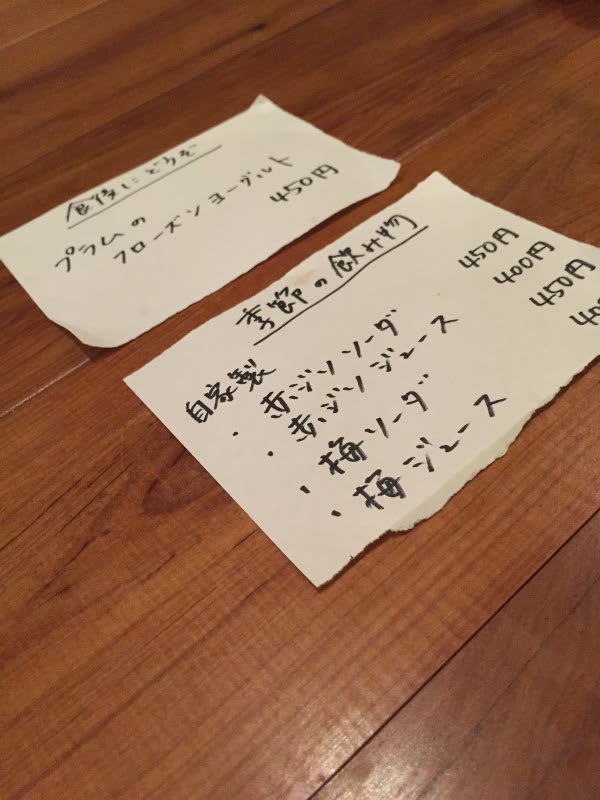 食後にどうぞ
プラムの
フローズンヨーグルト
450円
季節の飲み物
自家製
・赤ジソソーダ 450円
・赤ジソジュース 400円
・梅ソーダ 450円
・梅ジュース 400